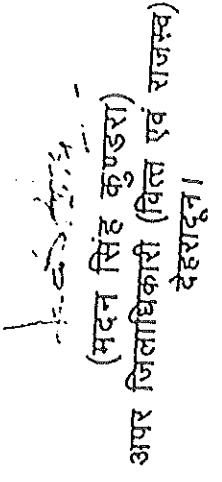 (मदन सिंह
अपर जिलाधिकारी (वित्त एवं राजस्व)
देहरादून।